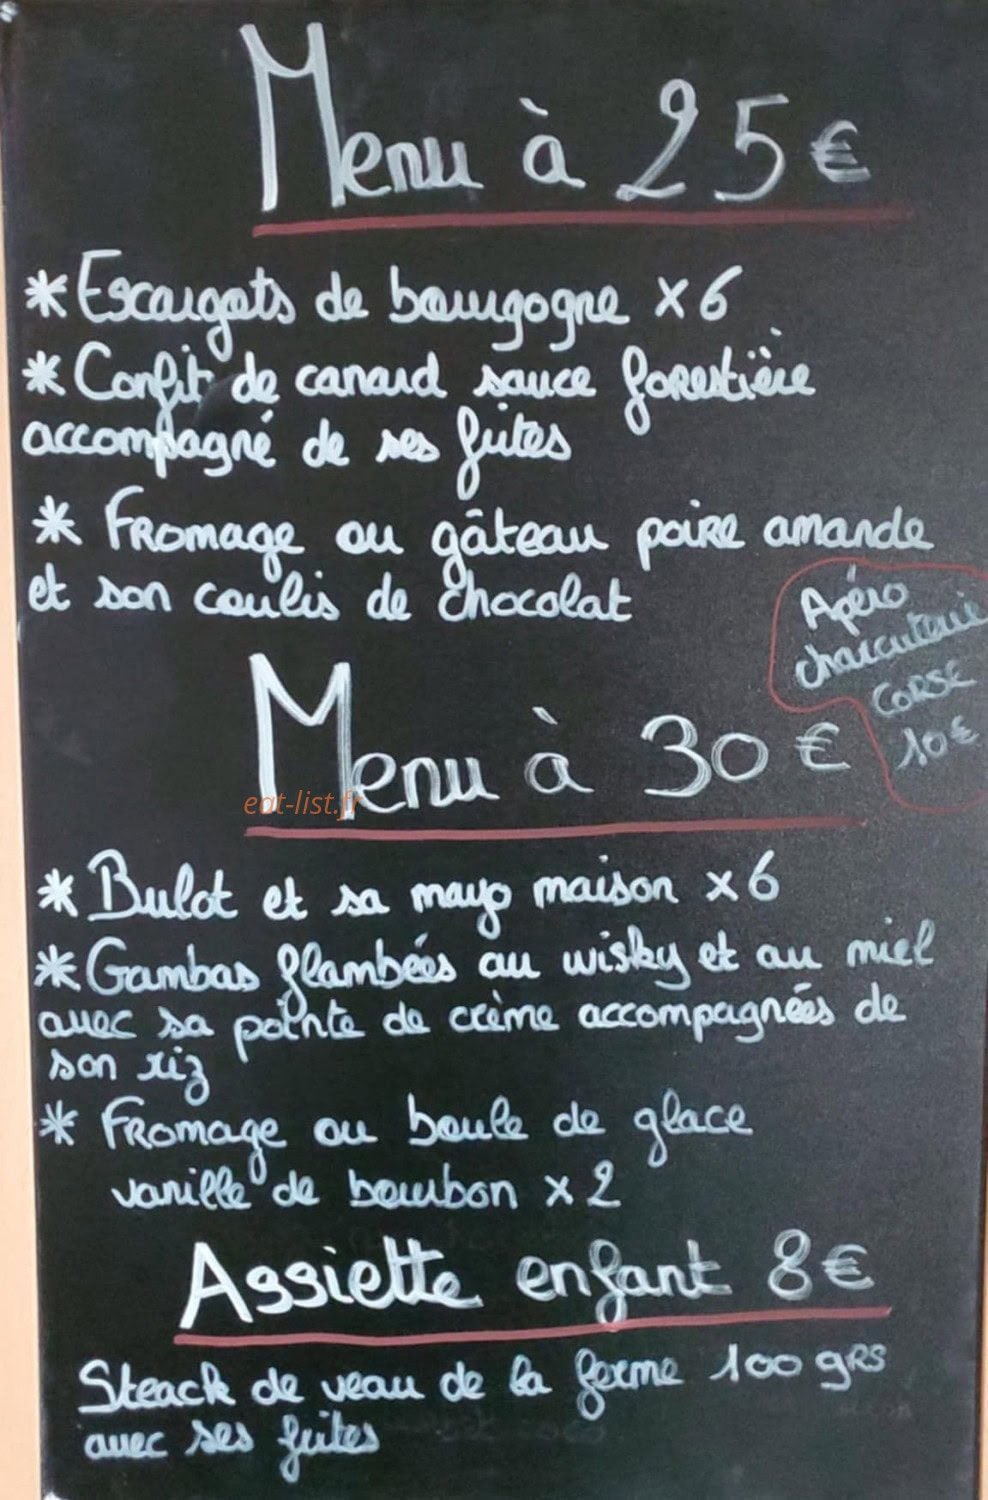 Menu à 25€
* Escargots de bourgogne x6
* Confit de canard sauce forestière
accompagné de ses frites
* Fromage ou gâteau poire amande
et son coulis de chocolat
Apéro
charcuterie
CORSE
10€
Menu à 30€
eat-list.fr
* Bulot et sa mayo maison x6
* Gambas flambées au wisky et au miel
avec sa pointe de crème accompagnées de
son riz
* Fromage ou boule de glace
vanille de bourbon x2
Assiette enfant 8€
Steack de veau de la ferme 100 grs
avec ses frites